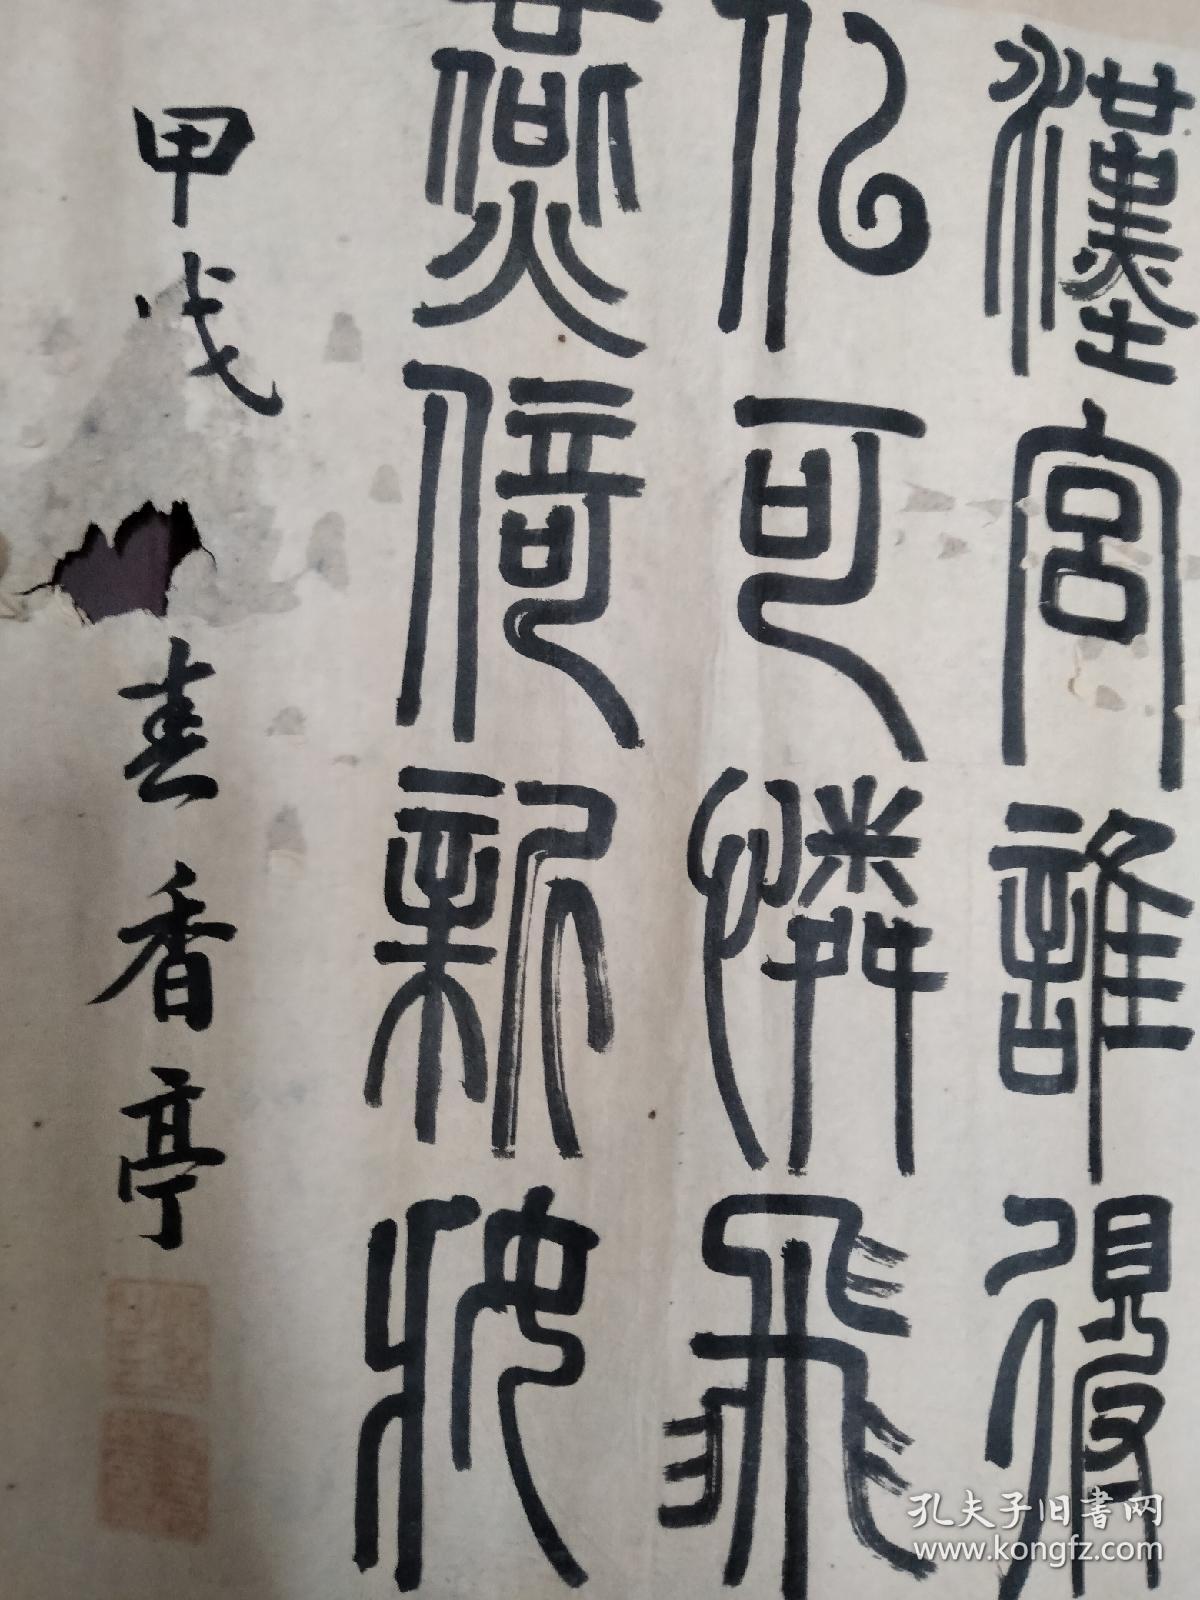 漢宮誰得
似可憐飛
燕倚新妝
甲戌
春香亭
孔夫子旧书网
www.kongfz.com